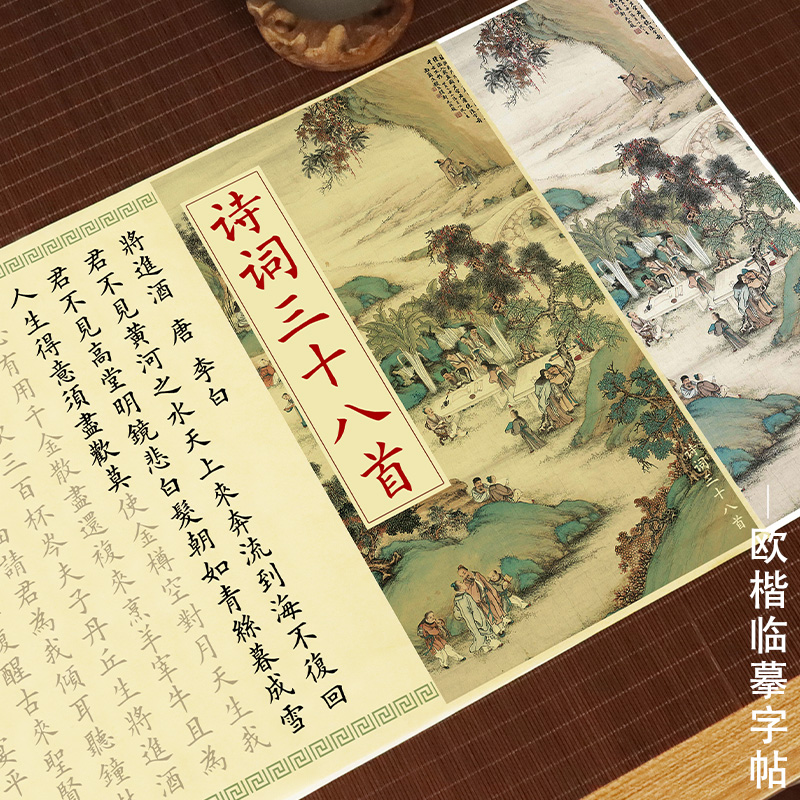 诗词三十八首
將進酒 唐 李白
君不見黄河之水天上來奔流到海不復回
君不見高堂明鏡悲白髮朝如青絲暮成雪
人生得意須盡歡莫使金樽空對月天生我
有用千金散盡還復來烹羊宰牛且為
三百杯岑夫子丹丘生將進酒
請君為我傾耳聽鐘
醒古來聖賢
宴平
诗词三十八首
欧楷临摹字帖